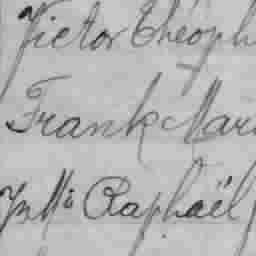 Victor Théoph
Frank Mari
Raphaël